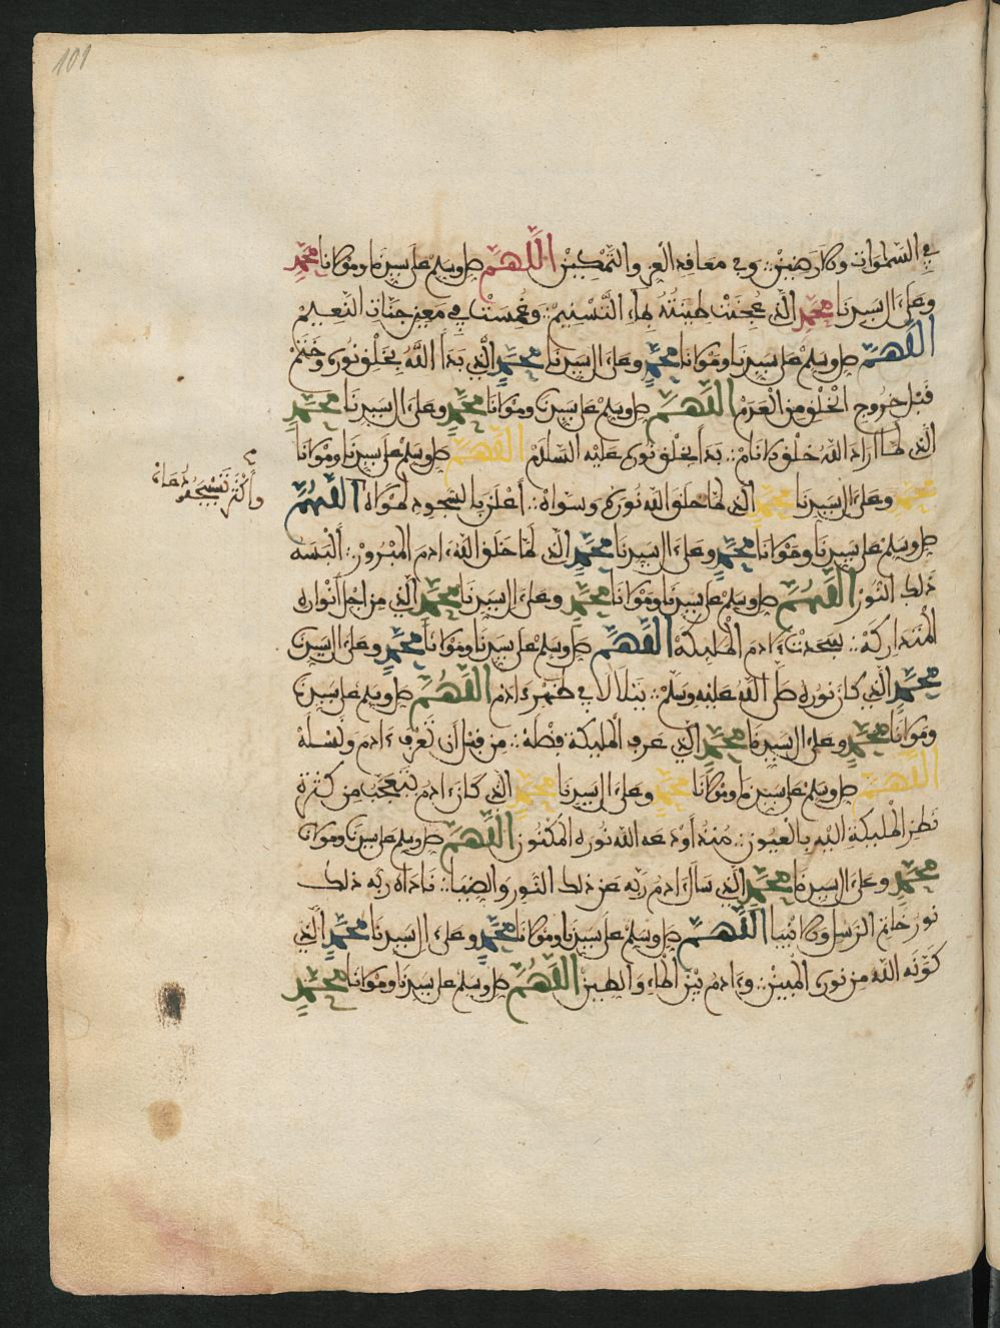 101
في السماوات والأرضين ∴ وفي معاقد العز والتمكين اللهم صل وسلم على سيدنا ومولانا محمد
وعلى ءال سيدنا محمد الذي عجنت طينته بماء التسنيم ∴ وغمست في معين جنات النعيم
اللهم صل وسلم على سيدنا ومولانا محمد وعلى ءال سيدنا محمد الذي بدأ الله بخلق نوره وختم
قبل خروج الخلق من العدم اللهم صل وسلم على سيدنا ومولانا محمد وعلى ءال سيدنا محمد
الذي لما أراد الله خلق الأنام ∴ بدأ بخلق نوره عليه السلام اللهم صل وسلم على سيدنا ومولانا
محمد وعلى ءال سيدنا محمد الذي لما خلق الله نوره وسواه ∴ أعلن بالسجود لمولاه اللهم
وأكثر تسبيحه ودعاه
صل وسلم على سيدنا ومولانا محمد وعلى ءال سيدنا محمد الذي لما خلق الله ءادم المبرور ∴ ألبسه
ذلك النور اللهم صل وسلم على سيدنا ومولانا محمد وعلى ءال سيدنا محمد الذي من أجل أنواره
المتداركة ∴ سجدت لآدم الملئكة اللهم صل وسلم على سيدنا ومولانا محمد وعلى ءال سيدنا
محمد الذي كان نوره صلى الله عليه وسلم ∴ يتلألأ في ظهر ءادم اللهم صل وسلم على سيدنا
ومولانا محمد وعلى ءال سيدنا محمد الذي عرف الملئكة فضله ∴ من قبل أن تعرف ءادم ونسله
اللهم صل وسلم على سيدنا ومولانا محمد وعلى ءال سيدنا محمد الذي كان ءادم يتعجب من كثرة
نظر الملئكة إليه بالعيون ∴ منذ أودعه الله نوره المكنون اللهم صل وسلم على سيدنا ومولانا
محمد وعلى ءال سيدنا محمد الذي سأل ءادم ربه عن ذلك النور والضياء ∴ ناداه ربه ذلك
نور خاتم الرسل والأنبياء اللهم صل وسلم على سيدنا ومولانا محمد وعلى ءال سيدنا محمد الذي
كونه الله من نوره المبين ∴ وءادم بين الماء والطين اللهم صل وسلم على سيدنا ومولانا محمد